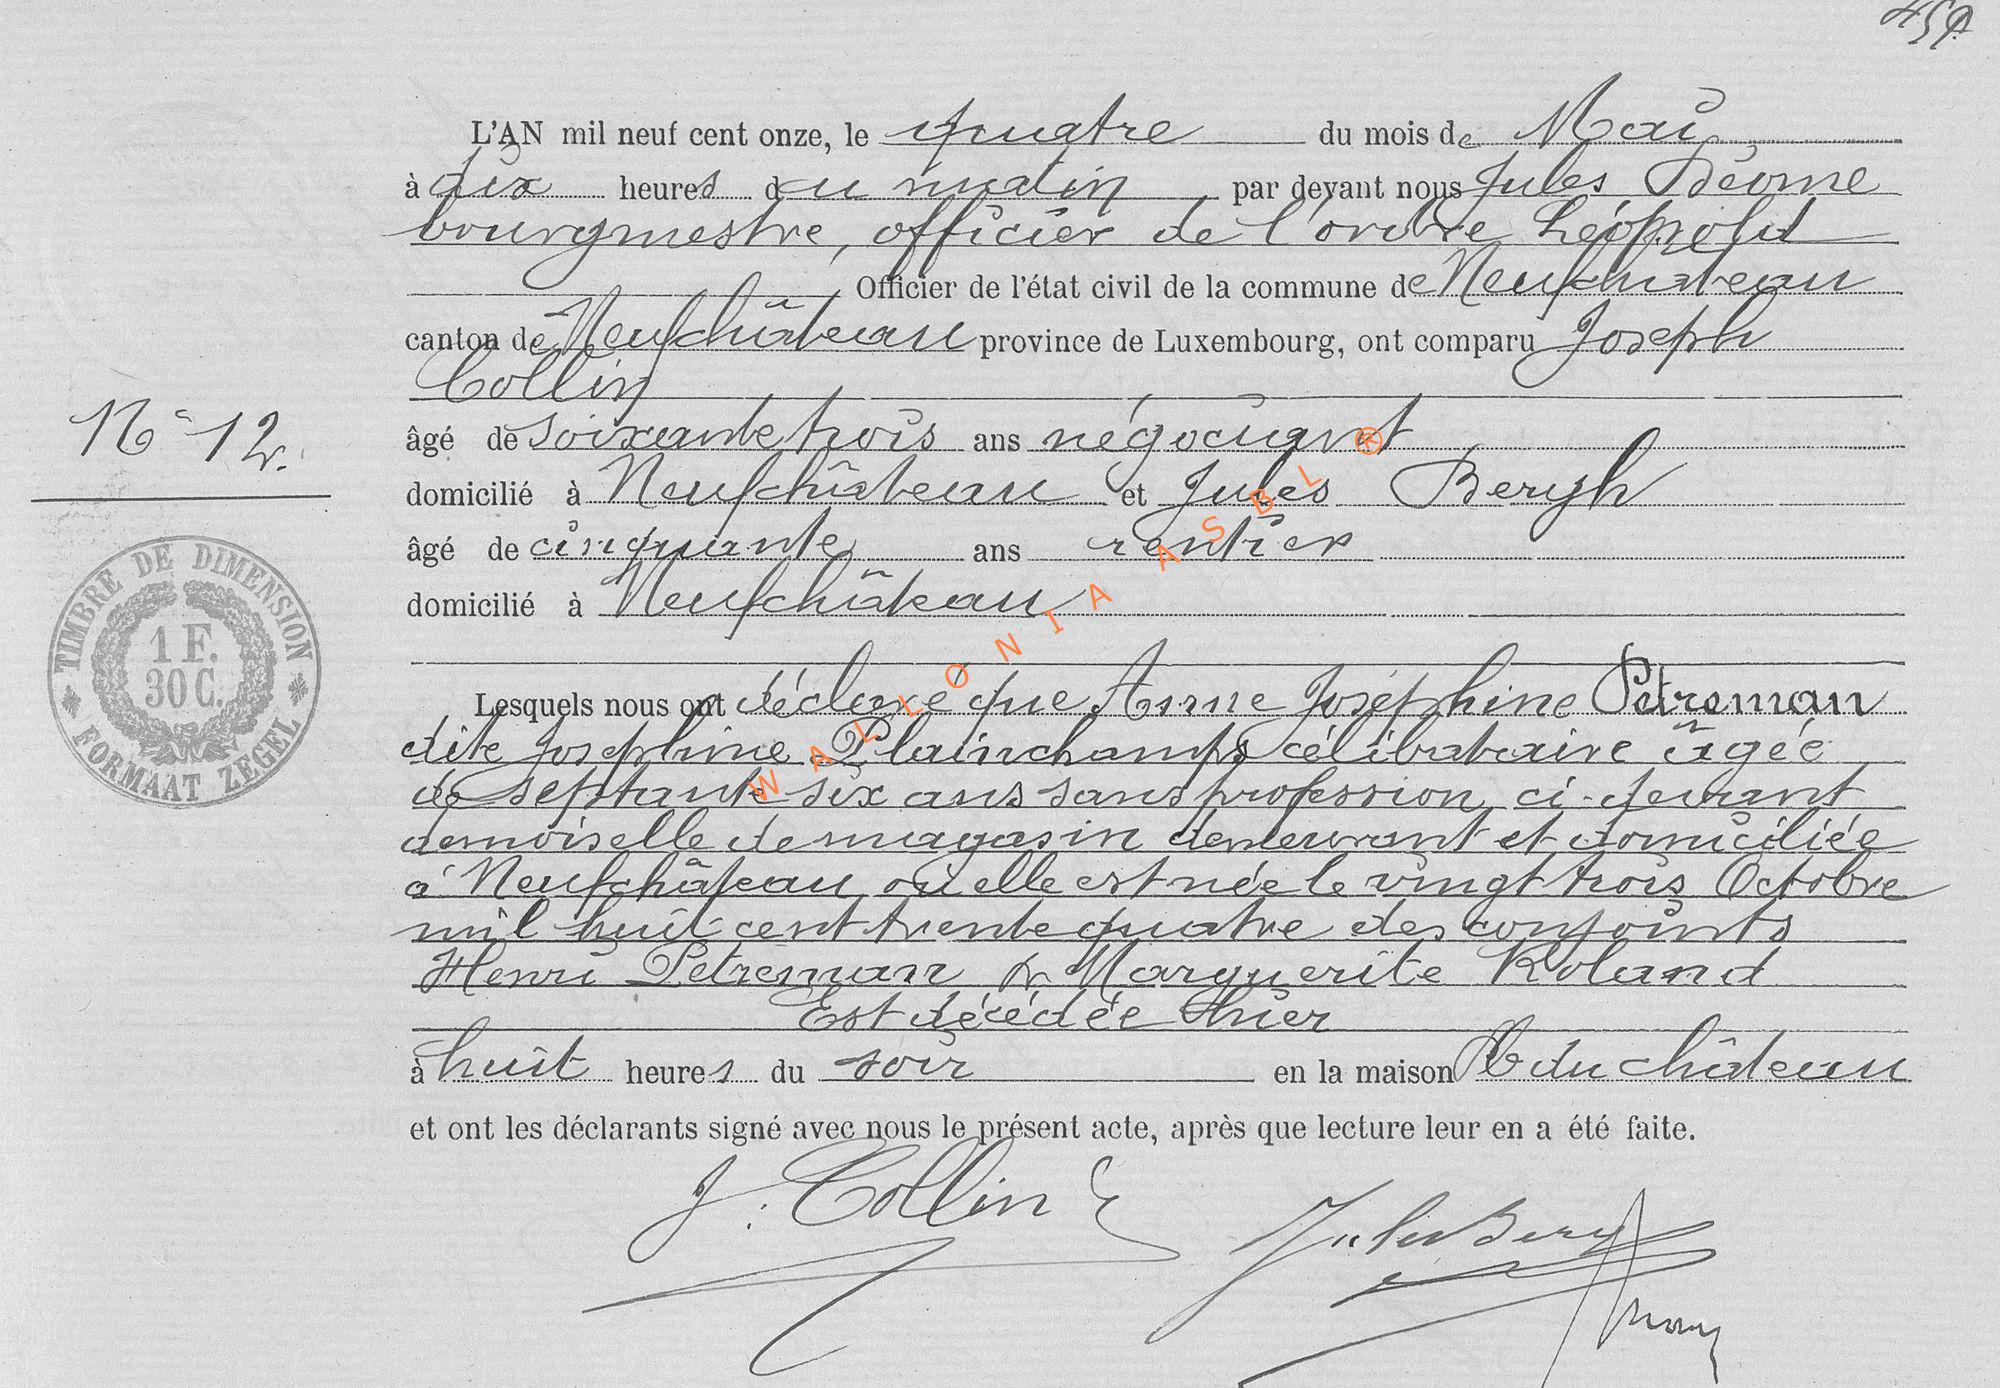 L'AN mil neuf cent onze, le quatre du mois de Mai
à dix heures du matin par devant nous Jules
bourgmestre, officier de l'ordre Léopold
Officier de l'état civil de la commune de Neufchateau
canton de Neufchâteau province de Luxembourg, ont comparu Joseph
Collin
N° 12.
âgé de soixante trois ans négociant
domicilié à Neufchâteau et Jules Bergh
âgé de cinquante ans rentier
domicilié à Neufchâteau
TIMBRE DE DIMENSION
1 F.
30 C.
FORMAAT ZEGEL
Lesquels nous ont déclaré que Anne Joséphine Petreman
dite Josephine Plainchamps célibataire âgée
de septante six ans sans profession, ci-devant
demoiselle de magasin demeurant et domiciliée
à Neufchâteau, où elle est née le vingt trois Octobre
mil huit cent trente quatre des conjoints
Henri Petreman & Marguerite Roland
Est décédée hier
à huit heures du soir en la maison du château
et ont les déclarants signé avec nous le présent acte, après que lecture leur en a été faite.
J. Collin
Jules Bergh
WALLONIA ASBL ®